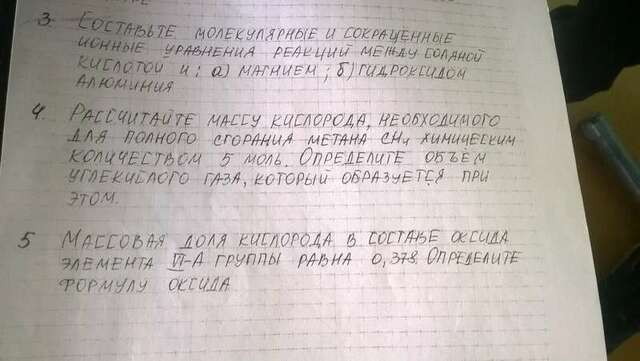 3. Составьте молекулярные и сокращенные
ионные уравнения реакций между соляной
кислотой и: а) магнием; б) гидроксидом
алюминия
4 Рассчитайте массу кислорода, необходимого
для полного сгорания метана CH4 химическим
количеством 5 моль. Определите объем
углекислого газа, который образуется при
этом.
5 Массовая доля кислорода в составе оксида
элемента VI-A группы равна 0,378 Определите
формулу оксида